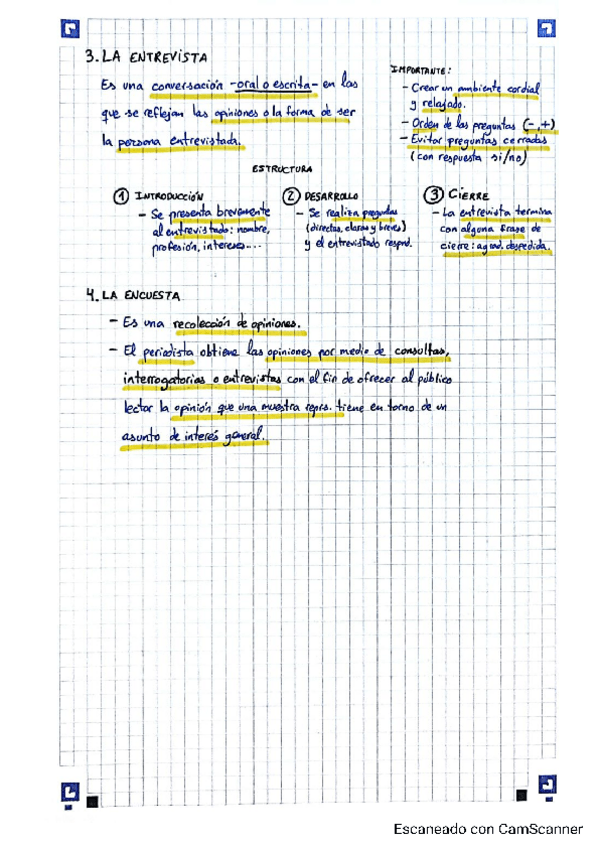 3. LA ENTREVISTA
Es una conversación -oral o escrita- en las
que se reflejan las opiniones o la forma de ser
la persona entrevistada.
IMPORTANTE:
- Crear un ambiente cordial
y relajado.
- Orden de las preguntas (-,+)
- Evitar preguntas cerradas
(con respuesta si/no)
ESTRUCTURA
1 INTRODUCCIÓN
- Se presenta brevemente
al entrevistado: nombre,
profesión, intereses...
2 DESARROLLO
- Se realiza preguntas
(directas, claras y breves)
y el entrevistado respond.
3 CIERRE
- La entrevista termina
con alguna frase de
cierre: agrad. despedida.
4. LA ENCUESTA
- Es una recolección de opiniones.
- El periodista obtiene las opiniones por medio de consultas,
interrogatorios o entrevistas con el fin de ofrecer al público
lector la opinión que una muestra repres. tiene en torno de un
asunto de interés general.
Escaneado con CamScanner